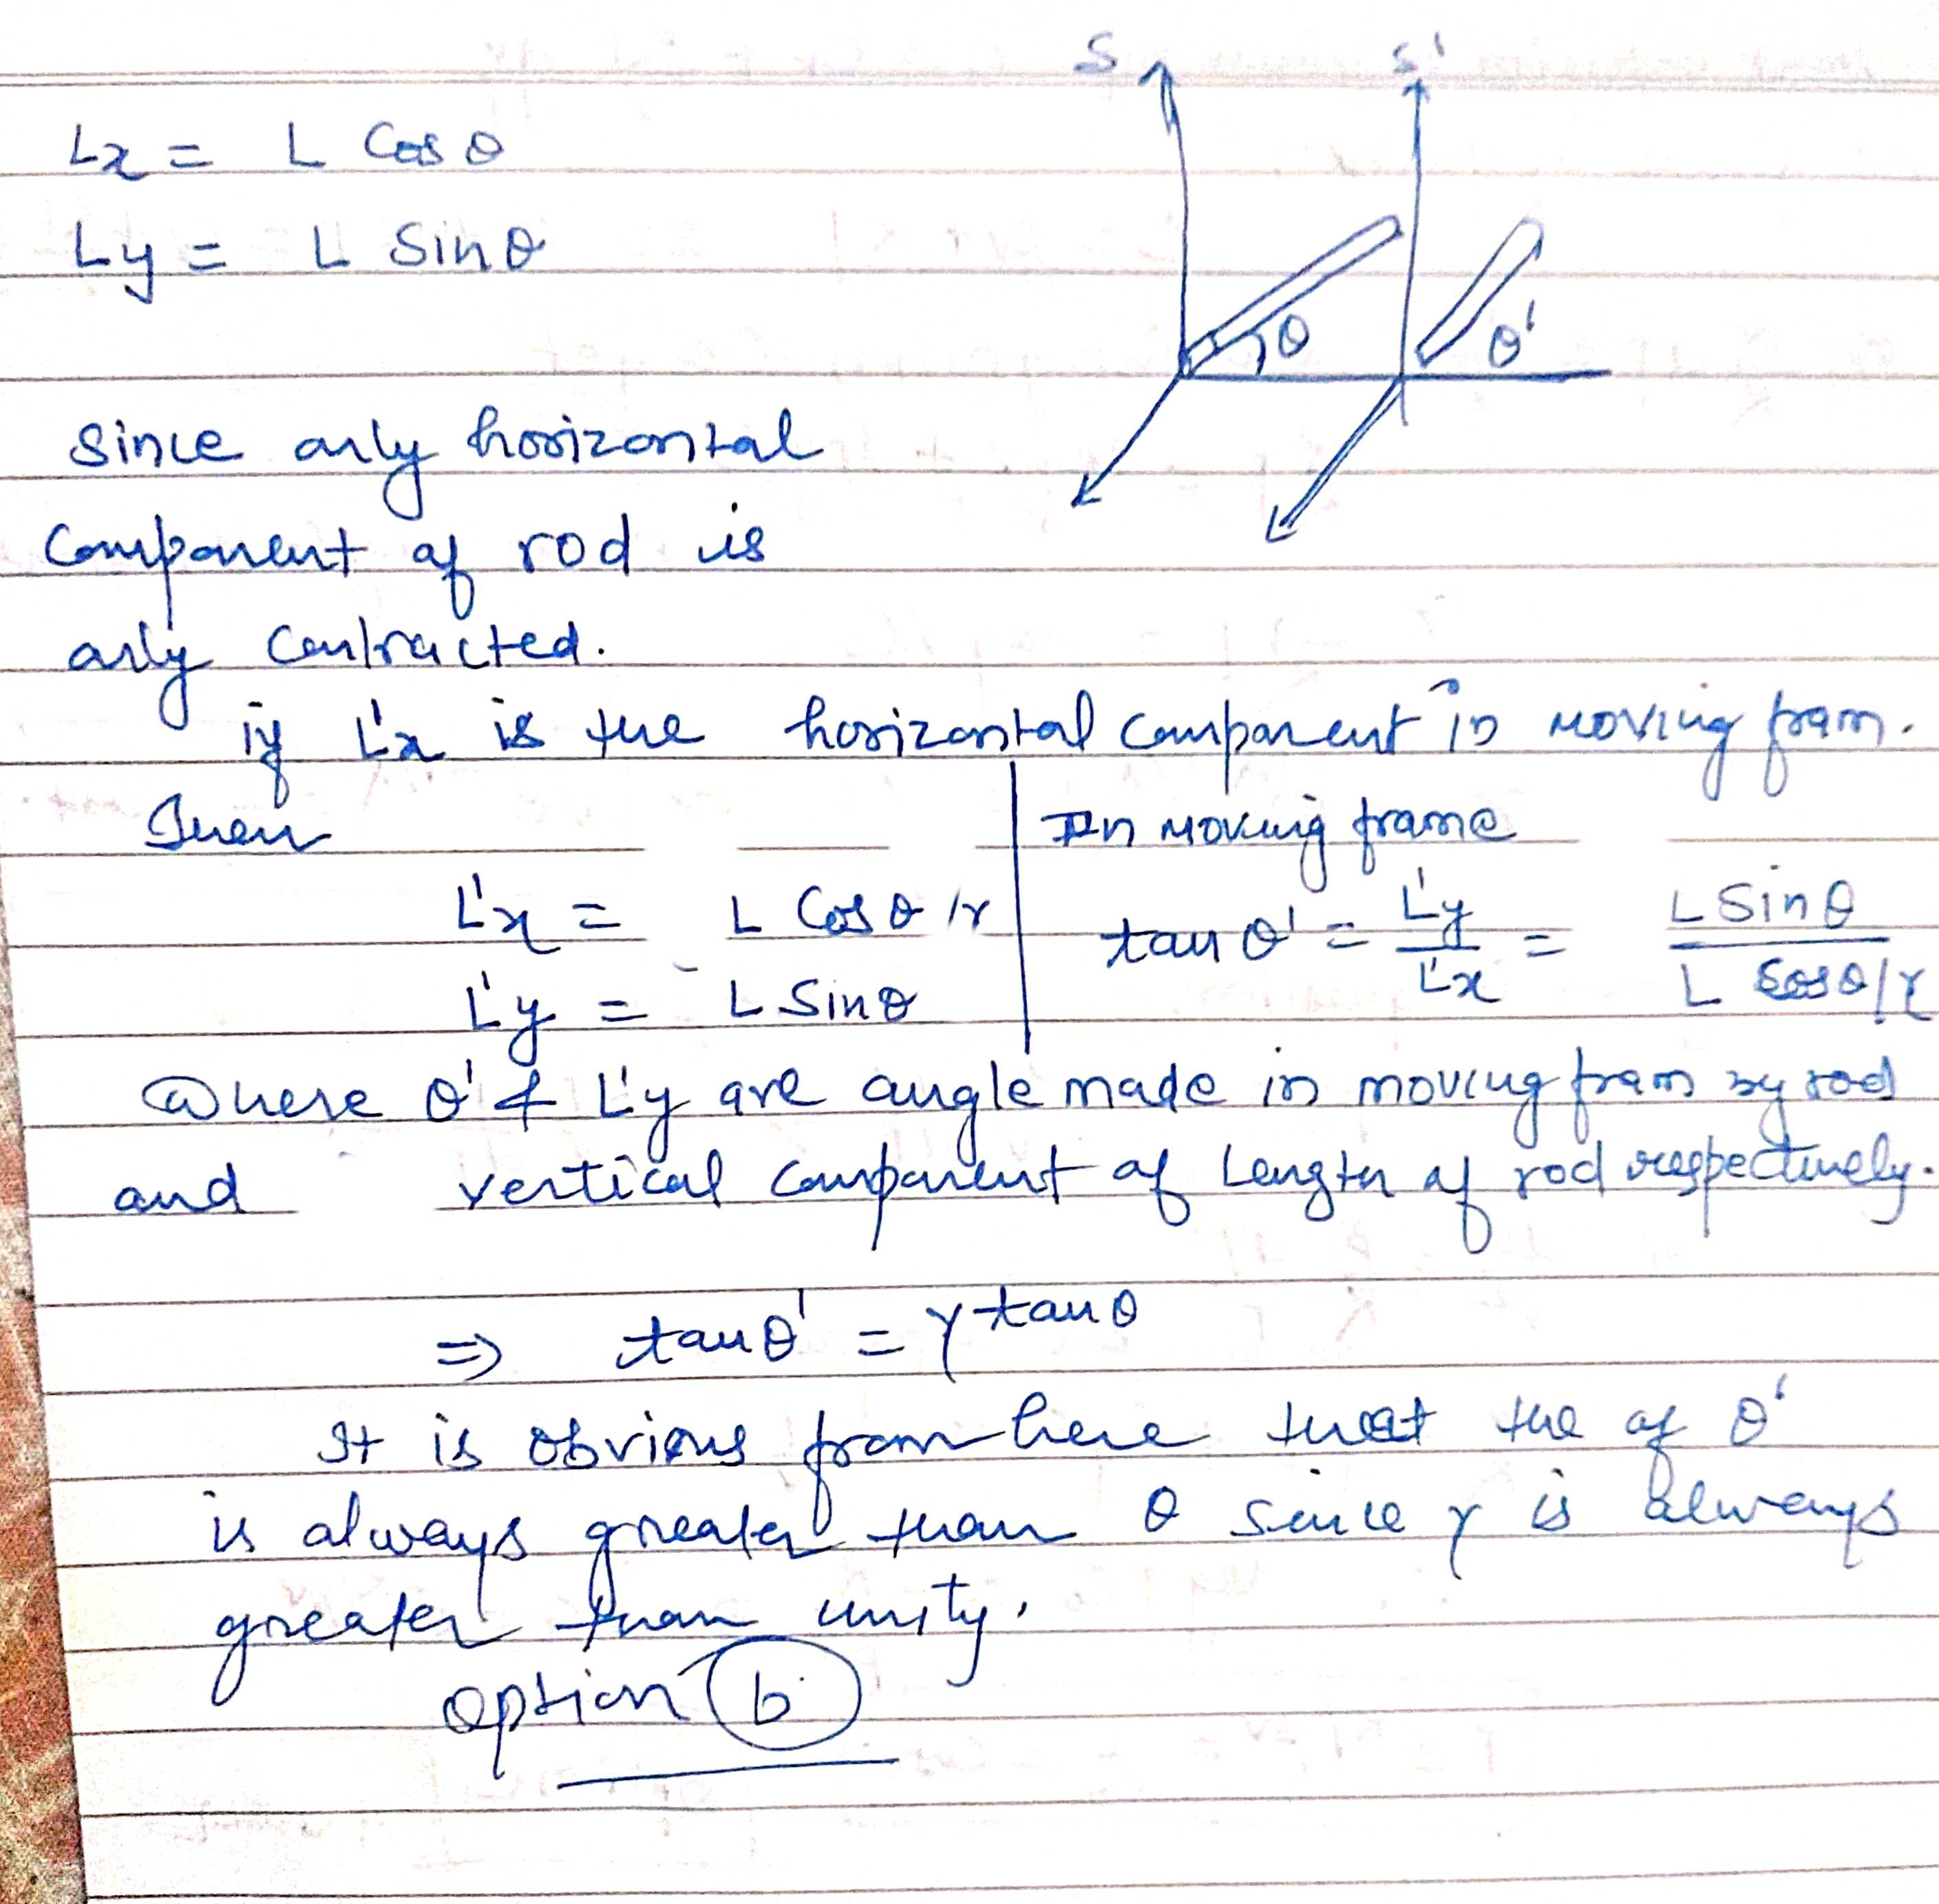 S S'
Lx = L Cos θ
Ly = L Sin θ
θ θ'
Since only horizontal
Component of rod is
only Contracted.
if L'x is the horizontal component in moving fram.
Then
In moving frame
L'x = L Cos θ /γ
tan θ' = L'y / L'x = L Sin θ / L Cos θ/γ
L'y = L Sin θ
Where θ' & L'y are angle made in moving fram by rod
and vertical component of Length of rod respectively.
⇒ tan θ' = γ tan θ
It is obvious from here that the of θ'
is always greater than θ since γ is always
greater than unity.
option b